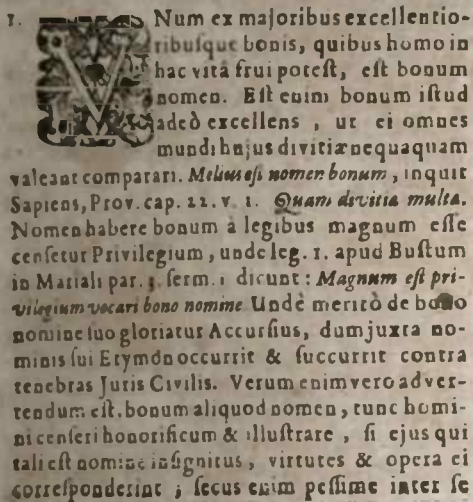 1. VNum ex majoribus excellentio-
ribuſque bonis, quibus homo in
hac vitâ frui poteſt, eſt bonum
nomen. Eſt enim bonum iſtud
adeò excellens, ut ei omnes
mundi hujus divitiæ nequaquam
valeant comparari. Melius eſt nomen bonum, inquit
Sapiens, Prov. cap. 22. v. 1. Quam divitiæ multæ.
Nomen habere bonum à legibus magnum eſſe
cenſetur Privilegium, unde leg. 1. apud Buſtum
in Mariali par. 3. ſerm. 1 dicunt: Magnum eſt pri-
vilegium vocari bono nomine Undè meritò de bono
nomine ſuo gloriatur Accurſius, dum juxta no-
minis ſui Etymon occurrit & ſuccurrit contra
tenebras Juris Civilis. Verum enimvero adver-
tendum eſt, bonum aliquod nomen, tunc homi-
ni cenſeri honorificum & illuſtrare, ſi ejus qui
tali eſt nomine inſignitus, virtutes & opera ei
correſponderint; ſecus enim peſſime inter ſe